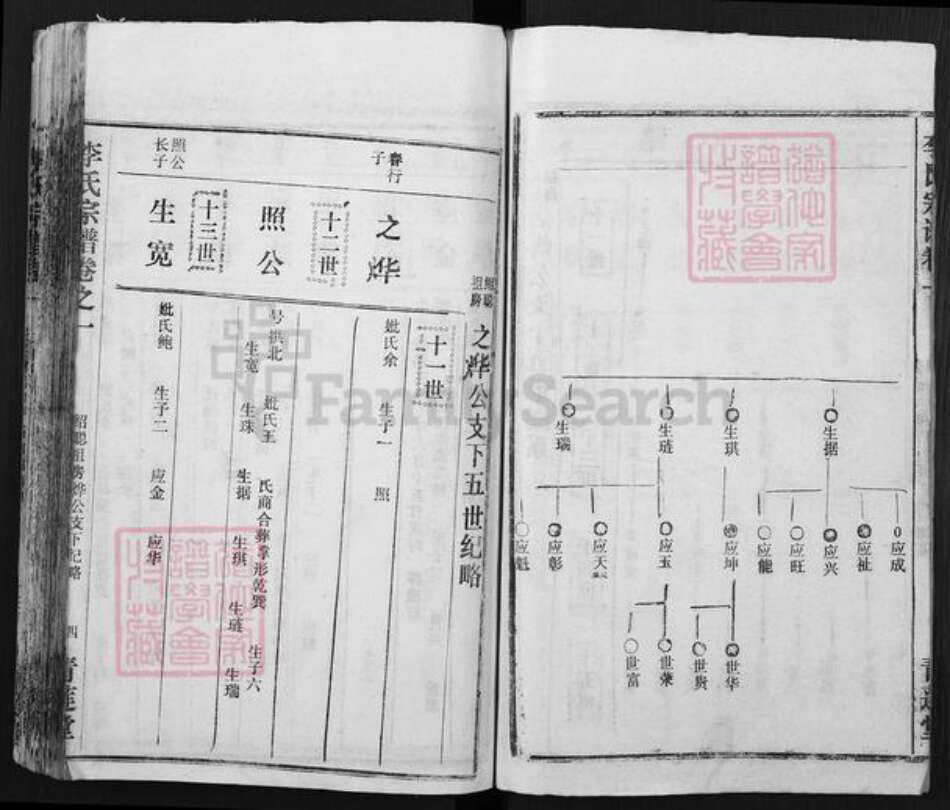 李氏宗谱卷一
生据
生琪
生琏
生瑞
应成
应祉
应兴
应旺
应能
应坤
应玉
应天
应彰
应魁
世华
世贵
世荣
世富
青莲堂
之烨公支下五世纪略
十一世
春行
子
之烨
妣氏余 生子一 照
十二世
照公
号拱北 妣氏王 氏商合葬 形乾巽 生子六
生宽 生珠 生据 生琪 生琏 生瑞
十三世
照公
长子
生宽
妣氏鲍 生子二 应金 应华
李氏宗谱卷之一
绍聪祖房烨公支下纪略
四
青莲堂
FamilySearch
谱学会
收藏